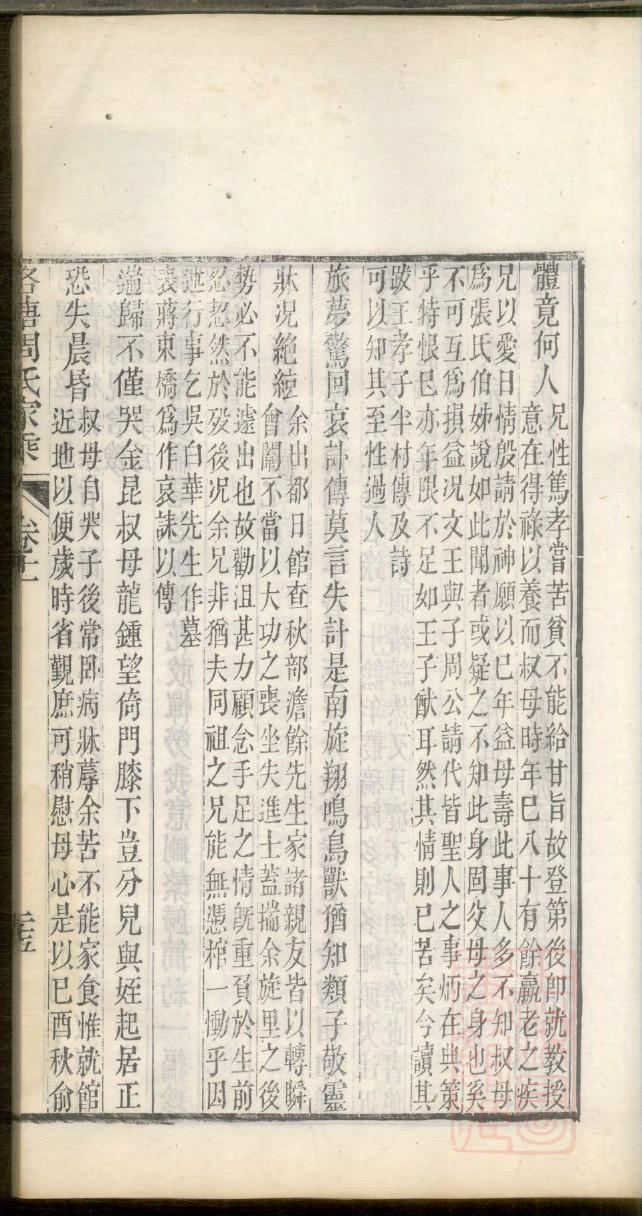 體竟何人
兄性篤孝嘗苦貧不能給甘旨故登第後卽就教授
意在得祿以養而叔母時年已八十有餘羸老之疾
兄以愛日情殷請於神願以已年益母壽此事人多不知叔母
爲張氏伯姊說如此聞者或疑之不知此身固父母之身也奚
不可互爲損益况文王與子周公請代皆聖人之事炳在典策
乎特恨已亦年限不足如王子猷耳然其情則已苦矣今讀其
跋王孝子半村傳及詩
可以知其至性過人
旅夢驚回哀訃傳莫言失計是南旋翔鳴鳥獸猶知類子敬靈
牀况絶絃
余出都日館查秋部澹餘先生家諸親友皆以轉瞬
會闈不當以大功之喪坐失進士蓋揣余旋里之後
勢必不能遽出也故勸沮甚力顧念手足之情旣重負於生前
忍恝然於歿後况余兄非猶夫同祖之兄能無憑棺一慟乎因
述行事乞吳白華先生作墓
表蔣東橋爲作哀誄以傳
遄歸不僅哭金昆叔母龍鍾望倚門膝下豈分兒與姪起居正
恐失晨昏
叔母自哭子後常卧病牀蓐余苦不能家食惟就館
近地以便歲時省覲庶可稍慰母心是以已酉秋偷
洛塘周氏家乘
卷十一